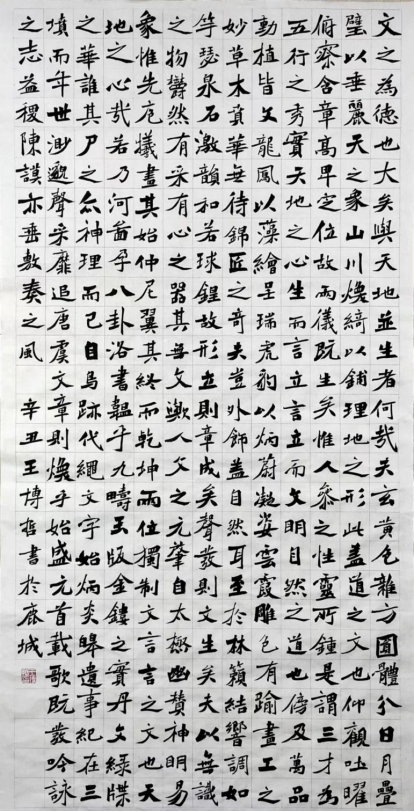 文之為德也大矣與天地並生者何哉夫玄黃色雜方圓體分日月疊
璧以垂麗天之象山川煥綺以鋪理地之形此蓋道之文也仰觀吐曜
俯察含章高卑定位故兩儀既生矣惟人參之性靈所鍾是謂三才為
五行之秀實天地之心生而言立言立而文明自然之道也傍及萬品
動植皆文龍鳳以藻繪呈瑞虎豹以炳蔚凝姿雲霞雕色有踰畫工之
妙草木賁華無待錦匠之奇夫豈外飾蓋自然耳至於林籟結響調如
竽瑟泉石激韻和若球鍠故形立則章成矣聲發則文生矣夫以無識
之物鬱然有采有心之器其無文歟人文之元肇自太極幽贊神明易
象惟先庖犧畫其始仲尼翼其終而乾坤兩位獨制文言言之文也天
地之心哉若乃河圖孕八卦洛書韞乎九疇玉版金鏤之實丹文綠牒
之華誰其尸之亦神理而已自鳥跡代繩文字始炳炎皞遺事紀在三
墳而年世渺邈聲采靡追唐虞文章則煥乎始盛元首載歌既發吟詠
之志益稷陳謨亦垂敷奏之風 辛丑王博哲書於鹿城